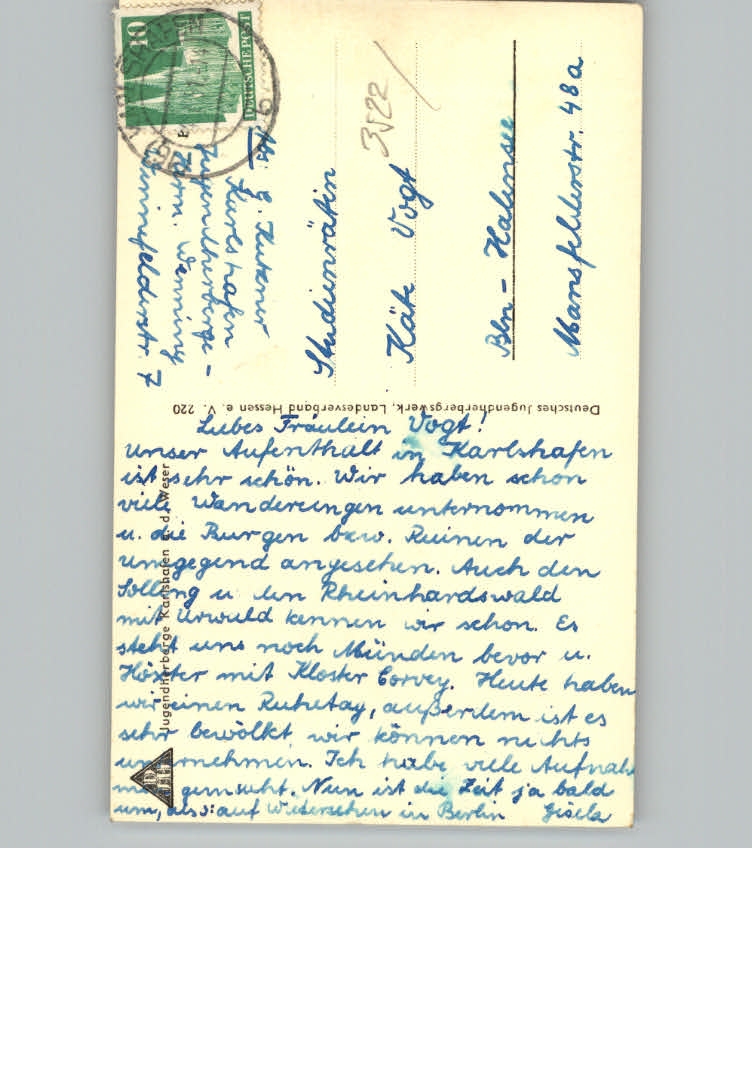 Liebes Fräulein Vogt!
unser Aufenthalt in Karlshafen
ist sehr schön. Wir haben schon
viele Wanderungen unternommen
u. die Burgen bzw. Ruinen der
Umgegend angesehen. Auch den
Solling u. den Rheinhardswald
mit Urwald kennen wir schon. Es
steht uns noch Münden bevor u.
Höxter mit Kloster Corvey. Heute haben
wir einen Ruhetag, außerdem ist es
sehr bewölkt wir können nichts
unternehmen. Ich habe viele Aufnah
gemacht. Nun ist die Zeit ja bald
um, also: auf Wiedersehen in Berlin Gisela
Abs. G.
Karlshafen
Jugendherberge -
7
Studienrätin
Käte Vogt
Bln - Halensee
Mansfelderstr. 48a
3522
Deutsches Jugendherbergswerk, Landesverband Hessen e. V. 220
Jugendherberge Karlshafen a. d. Weser
DJH
10
DEUTSCHE POST